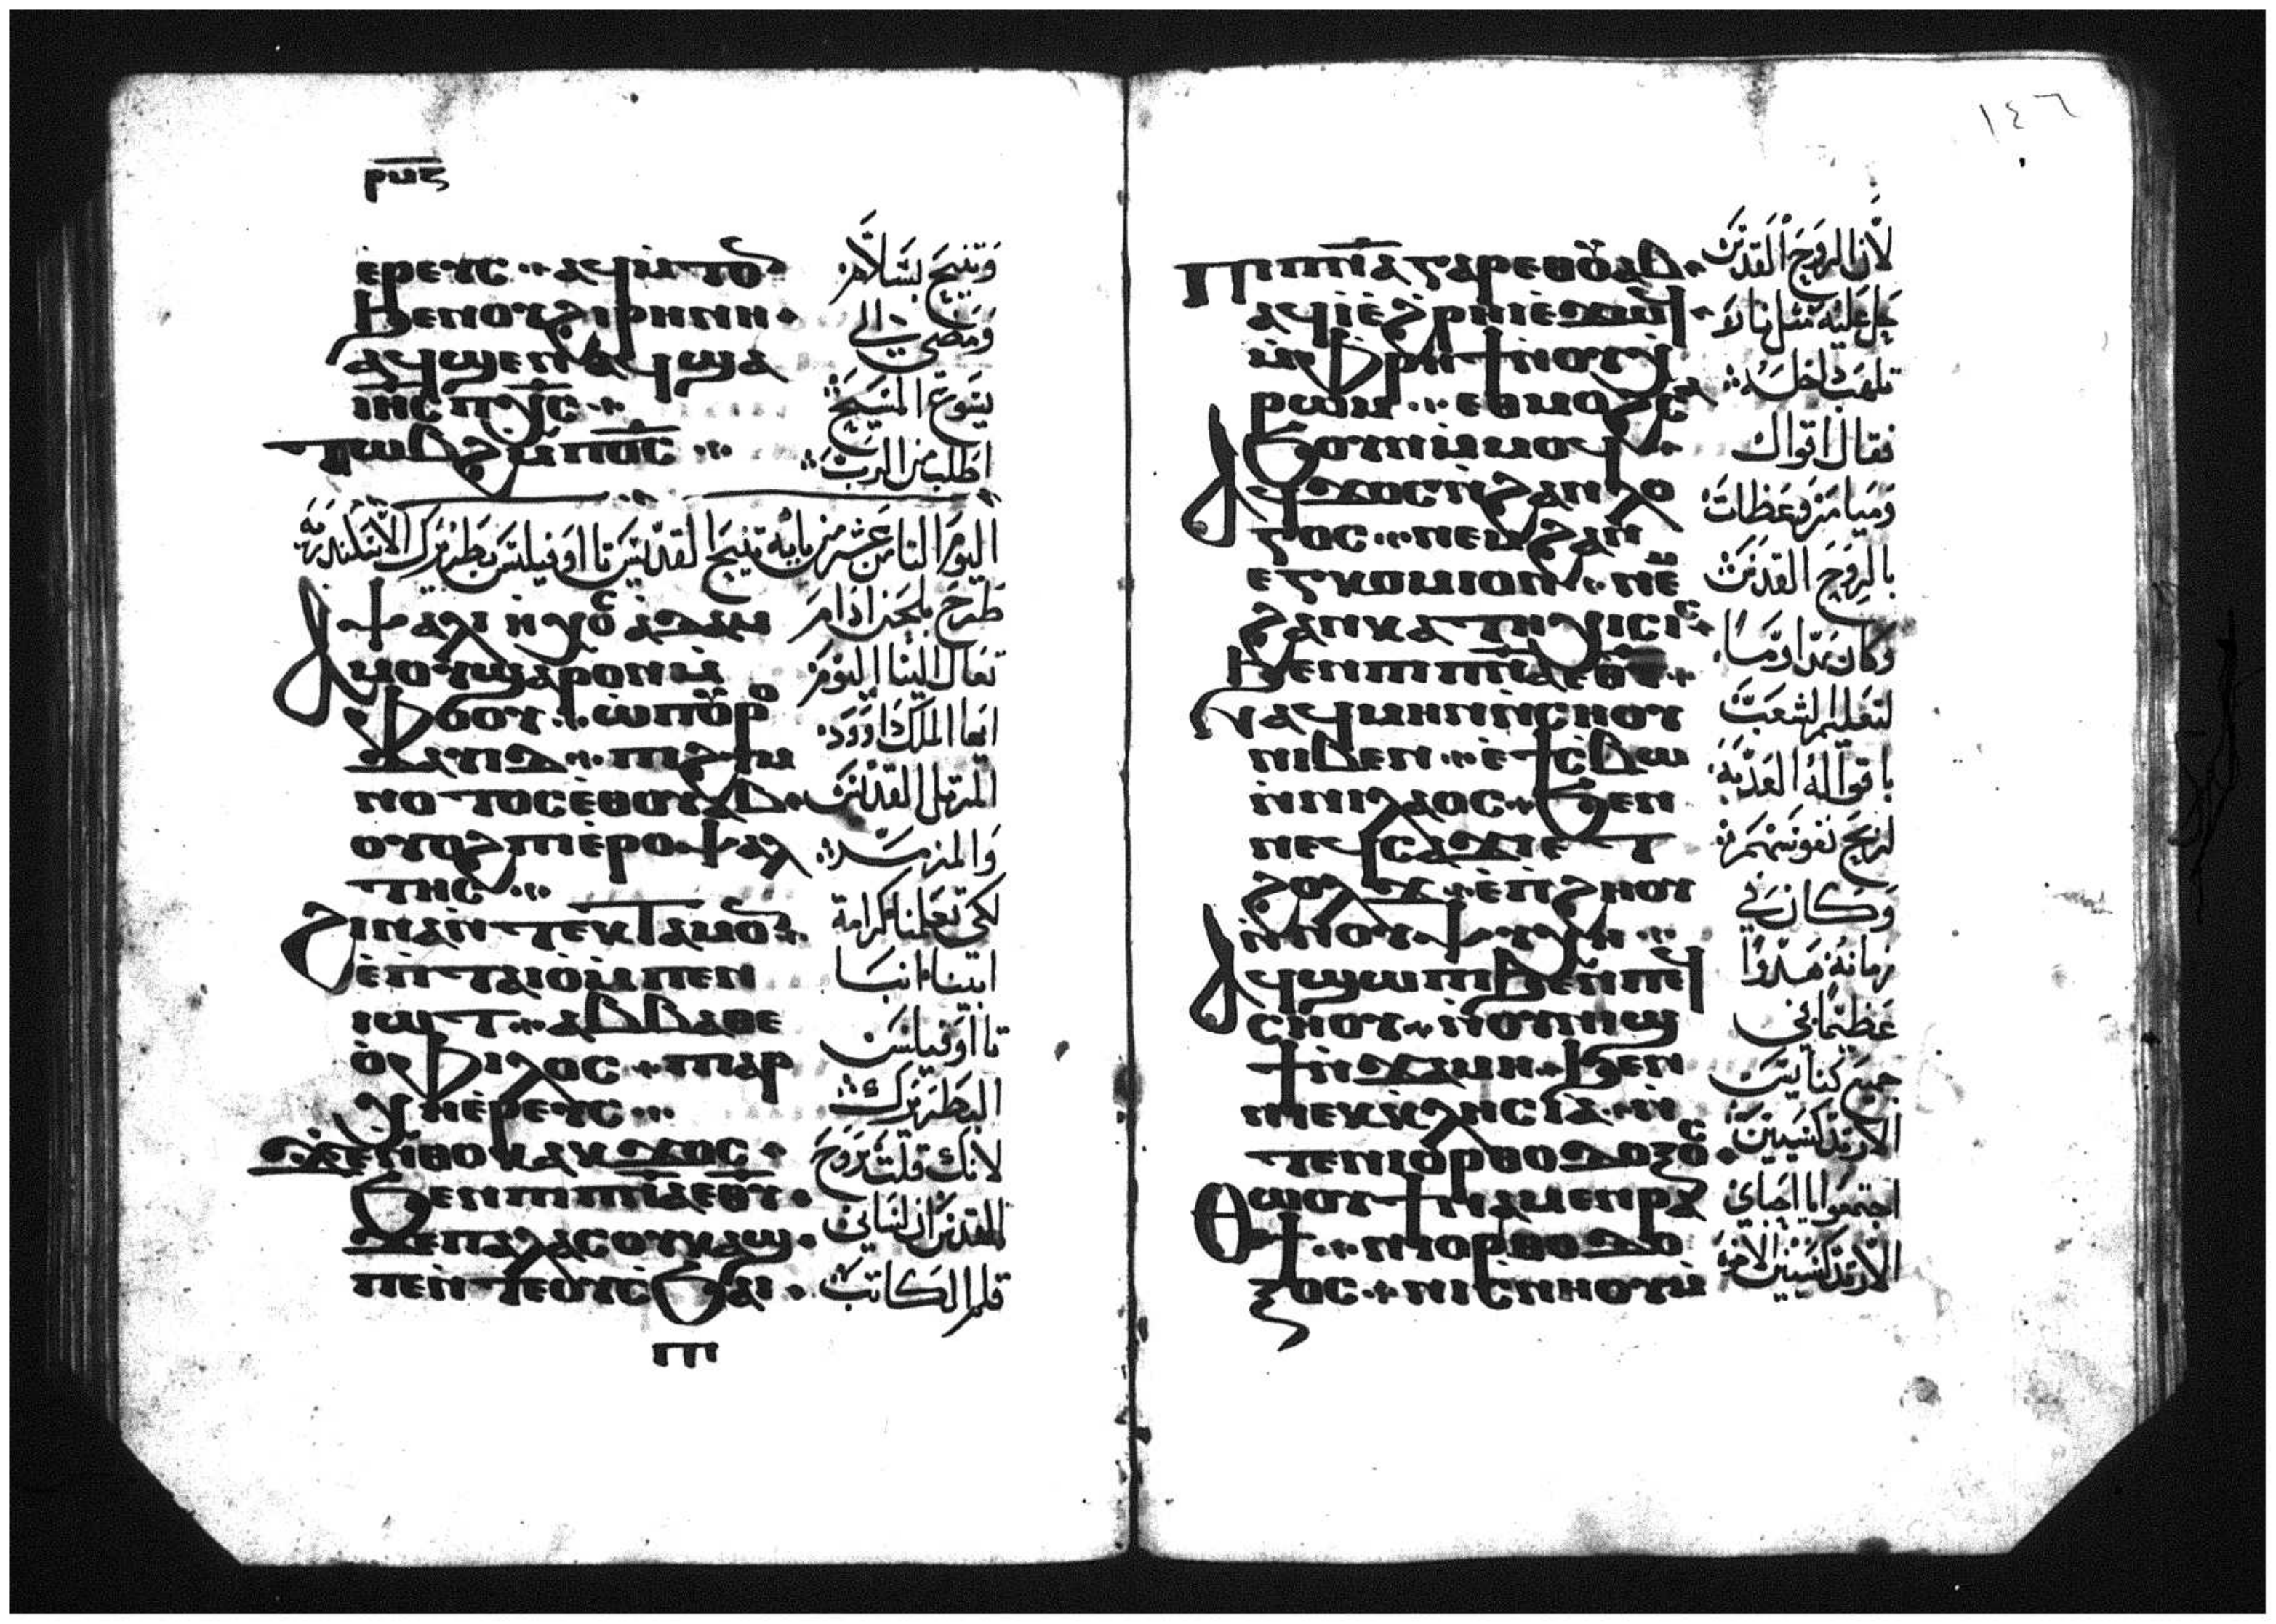 ⲣⲙⲋ
ⲉ̀ⲣⲉⲩⲥ ⲁϥⲙ̀ⲧⲟ
ϧⲉⲛⲟⲩϩⲓⲣⲏⲛⲏ
ⲁϥϣⲉⲛⲁϥ ϣⲁ
ⲓⲏⲥ ⲡⲭⲥ
ⲧⲱⲃϩ ⲙ̀ⲡⲟ̅ⲥ̅
وتنيح بسلام
ومضى الى
يسوع المسيح
اطلب من الرب
اليوم الثامن عشر من بابه تنيح القديس تااوفيلس بطريرك الاسكندريه
ⲯⲁⲗⲓ ⲛ̀ⲭⲟⲥ ⲁⲇⲁⲙ
ⲁⲙⲟⲩ ϣⲁⲣⲟⲛ ⲙ̀
ⲫⲟⲟⲩ ⲱ ⲡⲟⲩⲣⲟ
ⲇⲁⲩⲓⲇ ⲡⲓϩⲩⲙ
ⲛⲟⲧⲟⲥ ⲉⲑⲟⲩⲁⲃ
ⲟⲩⲟϩ ⲡⲓⲉ̀ⲣⲟⲯⲁⲗ
ⲧⲏⲥ
ϩⲓⲛⲁ ⲛ̀ⲧⲉⲕⲧⲁⲙⲟⲛ
ⲉ̀ⲡ̀ⲧⲁⲓⲟ ⲙ̀ⲡⲉⲛ
ⲓⲱⲧ ⲁⲃⲃⲁ ⲑⲉ
ⲟ̀ⲫⲓⲗⲟⲥ ⲡⲁⲣ
ⲭⲏⲉ̀ⲣⲉⲩⲥ
ϫⲉ ⲛ̀ⲑⲟⲕ ⲁⲕϫⲟⲥ
ϧⲉⲛ ⲡⲓⲡ̅ⲛ̅ⲁ̅ ⲉⲑⲩ
ϫⲉ ⲡⲁⲗⲁⲥ ⲟⲩⲕⲁϣ
ⲡⲉ ⲛ̀ⲧⲉ ⲟⲩⲥϧⲁⲓ
ⲡⲓ
طرح بلحن ادام
تعال الينا اليوم
ايها الملك داوود
المرتل القديس
والمزمر
لكي تعلمنا كرامة
ابينا انبا
تااوفيلس
البطريرك
لانك قلت بروح
القدس ان لساني
قلم الكاتب
١٤٦
ⲡⲓⲡ̅ⲛ̅ⲁ̅ ⲅⲁⲣ ⲉⲑⲟⲩⲁⲃ
ⲁϥⲓ̀ ⲉ̀ϩⲣⲏⲓ ⲉ̀ϫⲱϥ
ⲙ̀ⲫⲣⲏϯ ⲛ̀ⲟⲩⲭ
ⲣⲱⲙ ⲉⲑⲙⲟϩ ⲥ
ϧⲟⲩⲛ ⲙ̀ⲙⲟϥ
ⲁϥϫⲟⲥ ⲛ̀ϩⲁⲛⲗⲟ
ⲅⲟⲥ ⲛⲉⲙ ϩⲁⲛ
ⲉⲅⲕⲱⲙⲓⲟⲛ ⲛⲉⲙ
ϩⲁⲛⲕⲁⲧⲏⲭⲏⲥⲓⲥ
ϧⲉⲛ ⲡⲓⲡ̅ⲛ̅ⲁ̅ ⲉⲑⲩ
ⲛⲁϥⲙⲏⲛ ⲛ̀ⲥⲏⲟⲩ
ⲛⲓⲃⲉⲛ ⲉ̀ϯⲥⲃⲱ
ⲛ̀ⲛⲓⲗⲁⲟⲥ ϧⲉⲛ
ⲛⲉϥⲥⲁϫⲓ ⲉⲧ
ϩⲟⲗϫ ⲉ̀ⲡ̀ϩⲏⲟⲩ
ⲛ̀ⲛⲟⲩⲯⲩⲭⲏ
ⲁϥϣⲱⲡⲓ ϧⲉⲛ ⲡⲉϥ
ⲥⲏⲟⲩ ⲛ̀ⲟⲩⲛⲓϣ
ϯ ⲛ̀ϫⲁⲙⲏ ϧⲉⲛ
ⲛⲓⲉⲕⲕⲗⲏⲥⲓⲁ ⲛ̀
ⲧⲉ ⲛⲓⲟⲣⲑⲟⲇⲟⲝⲟⲥ
ⲑⲱⲟⲩϯ ⲛⲁⲙⲉⲛⲣⲁ
ϯ ⲛⲓⲟⲣⲑⲟⲇⲟ
ⲝⲟⲥ ⲛⲓⲥ̀ⲛⲏⲟⲩ ⲙ̀
لان الروح القدس
حل عليه مثل نار لا
تلهب داخله
فقال اقوال
وميامر وعظات
بالروح القدس
وكان مداوما
لتعليم الشعب
باقواله العذبة
لربح نفوسهم
وكان في
زمانه هدوا
عظيما في
جميع كنايس
الارتدكسيين
اجتمعوا يا احباي
الارتدكسيين الاخوة